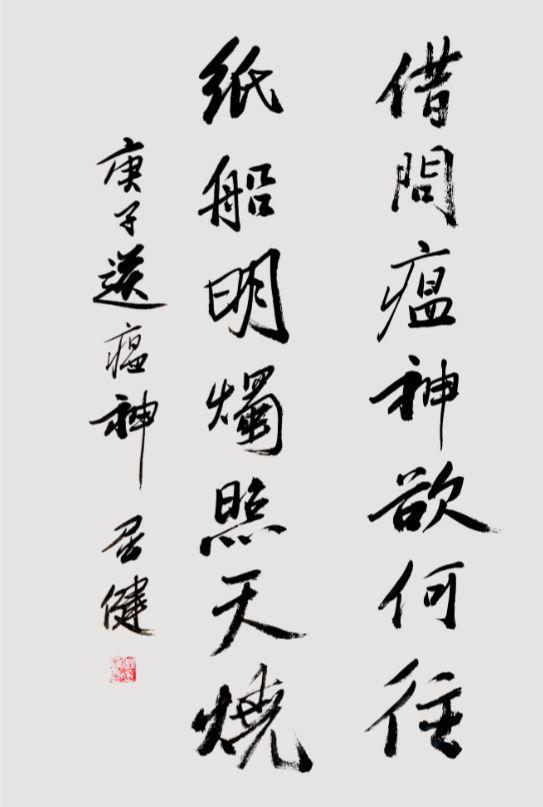 借問瘟神欲何往
纸船明燭照天燒
庚子送瘟神 居健